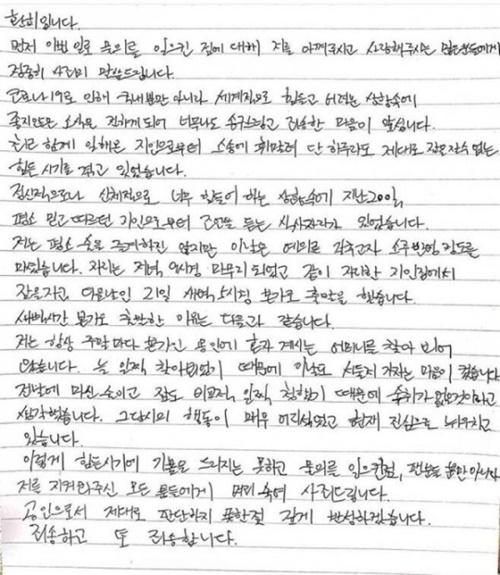 환희입니다.
먼저 이번 일로 물의를 일으킨 점에 대해 저를 아껴주시고 사랑해주시는 팬분들에게
정중히 사과의 말씀드립니다.
코로나19로 인해 국내뿐만 아니라 세계적으로 힘들고 어려운 상황속에
좋지않은 소식을 전하게 되어 너무나도 송구스럽고 죄송한 마음이 앞섭니다.
최근 함께 일해온 지인으로부터 소송에 휘말려 단 하루라도 제대로 잠을 잘 수 없는
힘든 시기를 겪고 있었습니다.
정신적으로나 신체적으로 너무 힘들어 하는 상황속에 지난 20일,
평소 믿고 따르던 지인으로부터 조언을 듣는 식사자리가 있었습니다.
저는 평소 술을 즐겨하진 않지만 이날은 예의를 갖추고자 소주 반병 정도를
마셨습니다. 자리는 저녁, 9시경 마무리 되었고 같이 자리한 지인집에서
잠을 자고 다음날인 21일 새벽, 5시경 본가로 출발을 했습니다.
새벽시간 본가로 출발한 이유는 다음과 같습니다.
저는 항상 주말마다 본가인 용인에 혼자 계시는 어머니를 찾아 뵈어
왔습니다. 늘 일찍 찾아뵈었기 때문에 이날도 서둘러 가자는 마음이 컸습니다
전날에 마신 술이고 잠도 비교적 일찍 청했기 때문에 숙취가 없을거라고
생각했습니다. 그 당시의 행동이 매우 어리석었고 현재 진심으로 뉘우치고
있습니다.
이렇게 힘든시기에 기쁨을 드리지는 못하고 물의를 일으킨점, 팬분들 뿐만 아니라
저를 지켜봐주신 모든 분들에게 머리 숙여 사죄드립니다.
공인으로서 제대로 판단하지 못한점 깊게 반성하겠습니다.
죄송하고 또 죄송합니다.